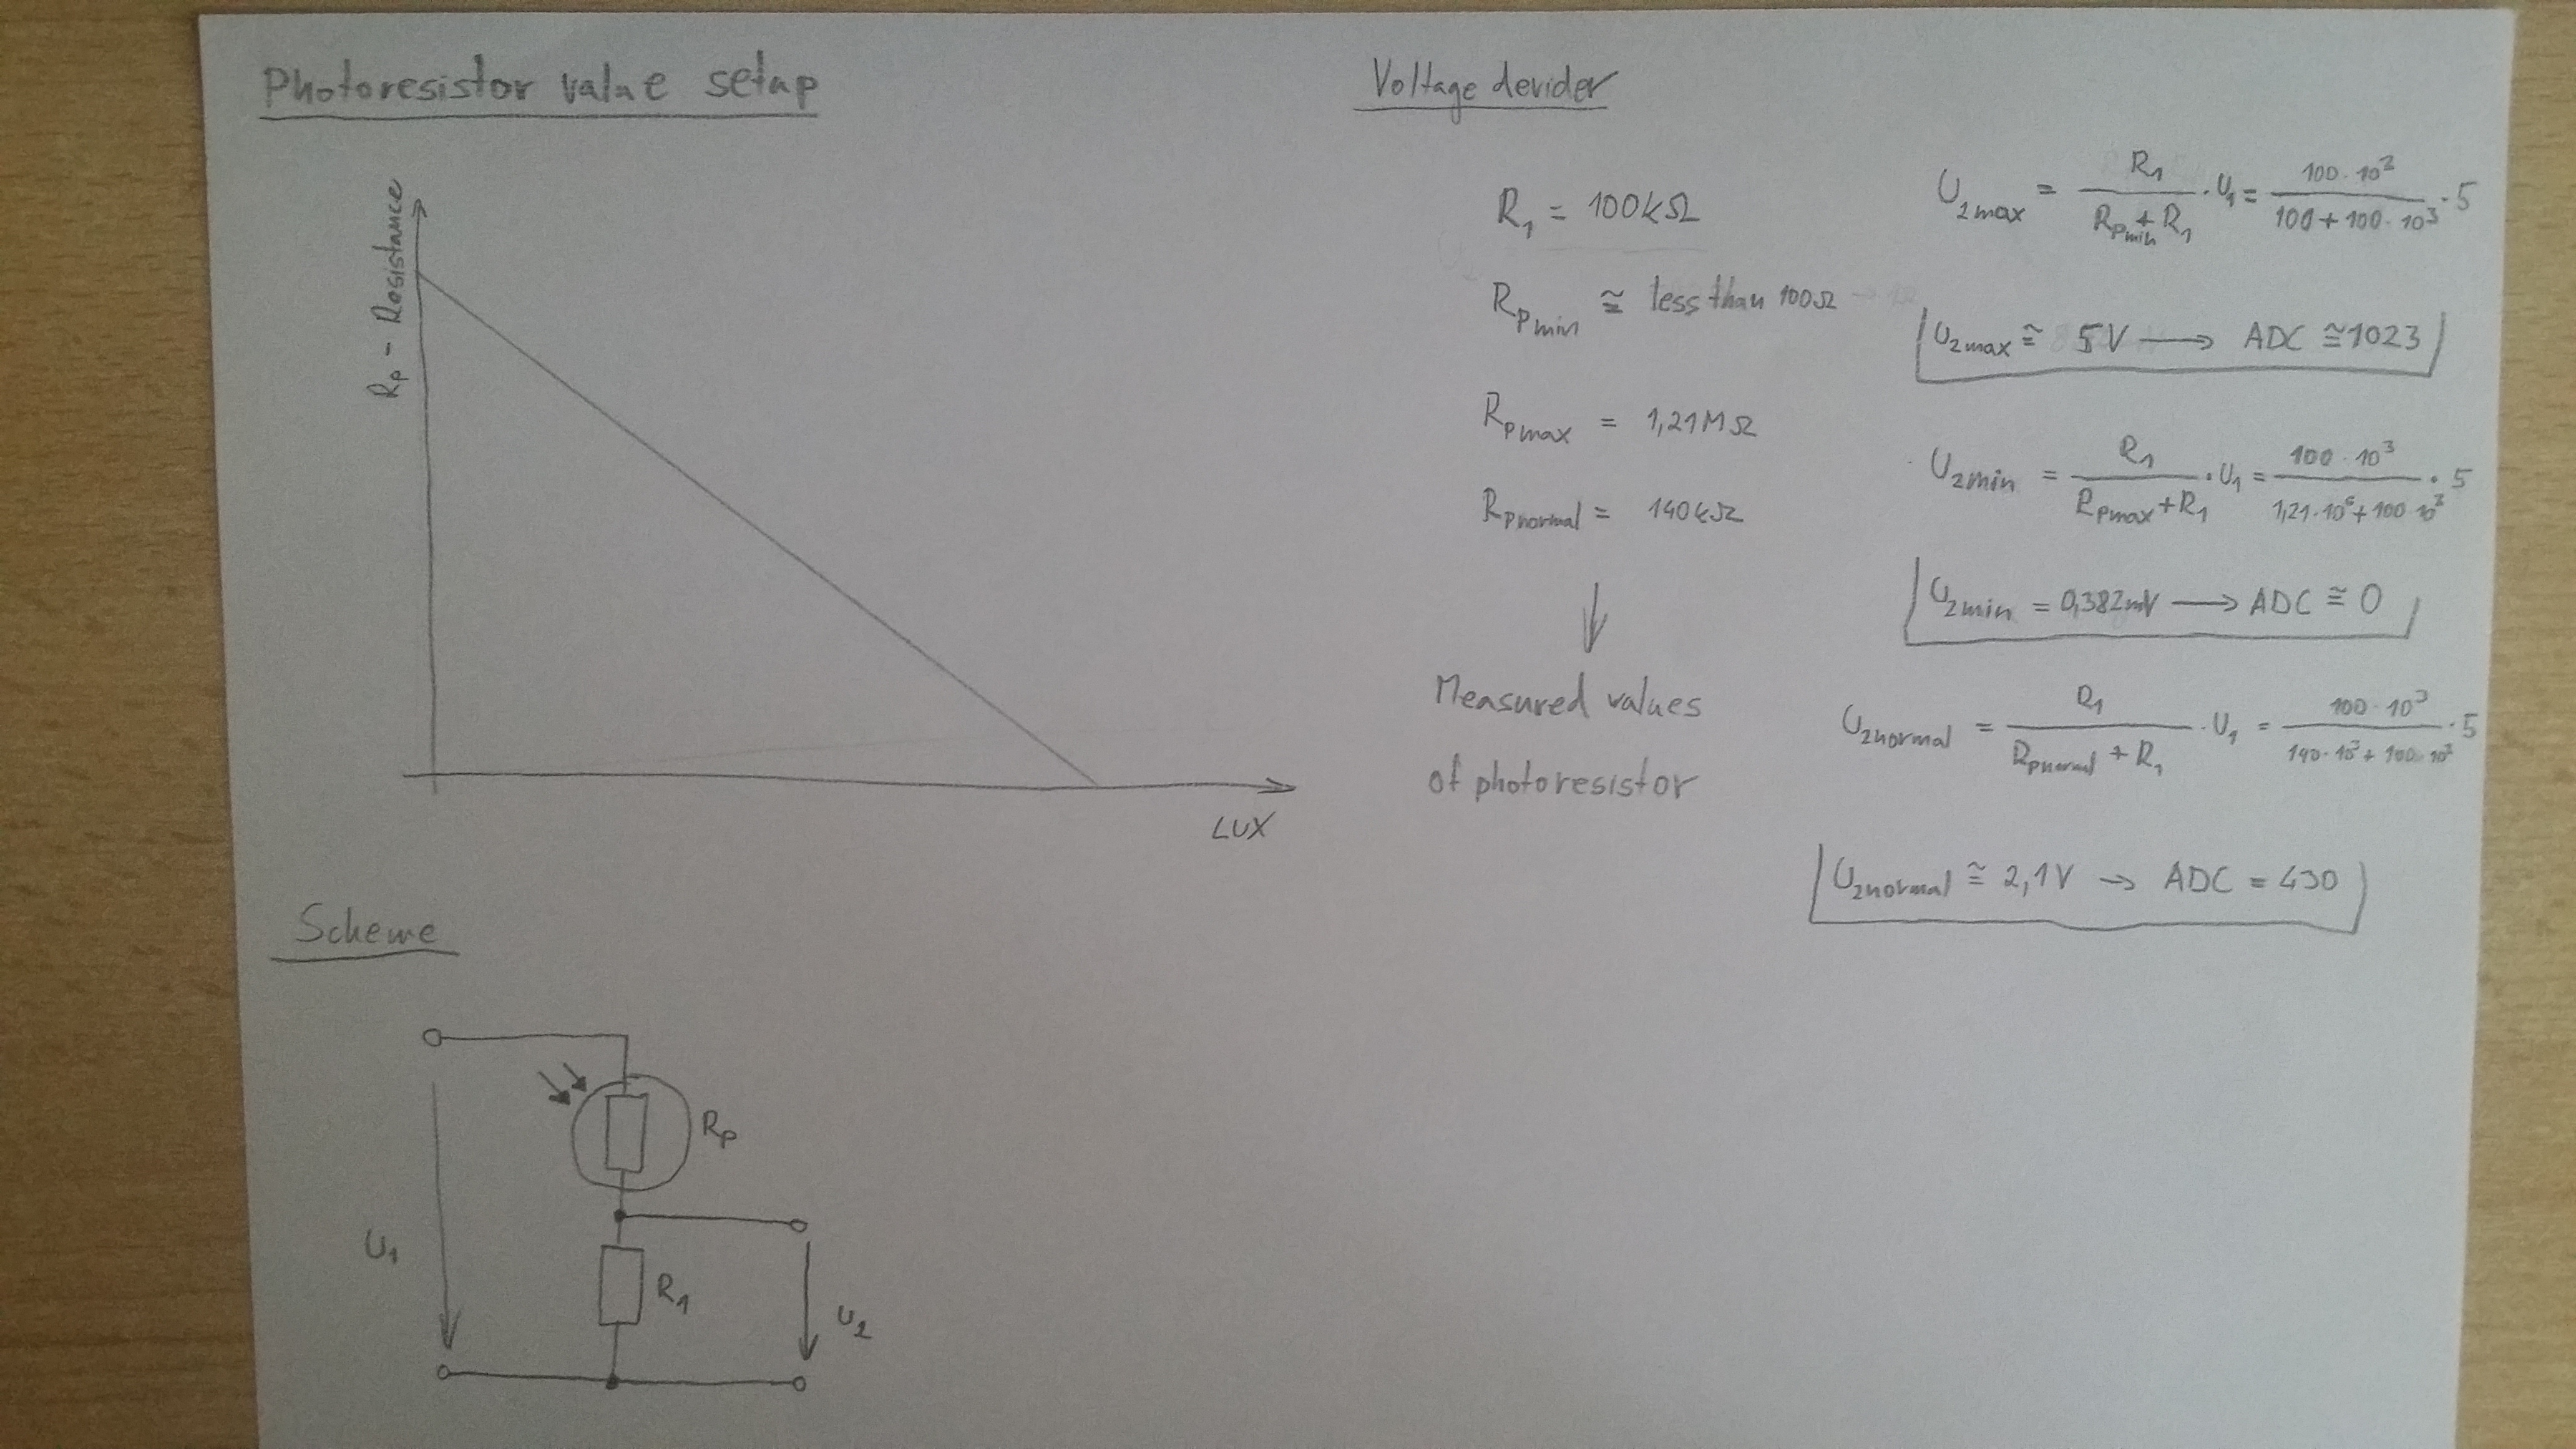 Photoresistor value setup
Rp - Resistance
LUX
Scheme
U1
Rp
R1
U2
Voltage devider
R1 = 100kΩ
Rpmin ≅ less than 100Ω
Rpmax = 1,21MΩ
Rpnormal = 140kΩ
Measured values
of photoresistor
U2max = R1 / (Rpmin + R1) · U1 = 100·10³ / (100 + 100·10³) · 5
U2max ≅ 5V → ADC ≅ 1023
U2min = R1 / (Rpmax + R1) · U1 = 100·10³ / (1,21·10⁶ + 100·10³) · 5
U2min = 0,382mV → ADC ≅ 0
U2normal = R1 / (Rpnormal + R1) · U1 = 100·10³ / (140·10³ + 100·10³) · 5
U2normal ≅ 2,1V → ADC = 430